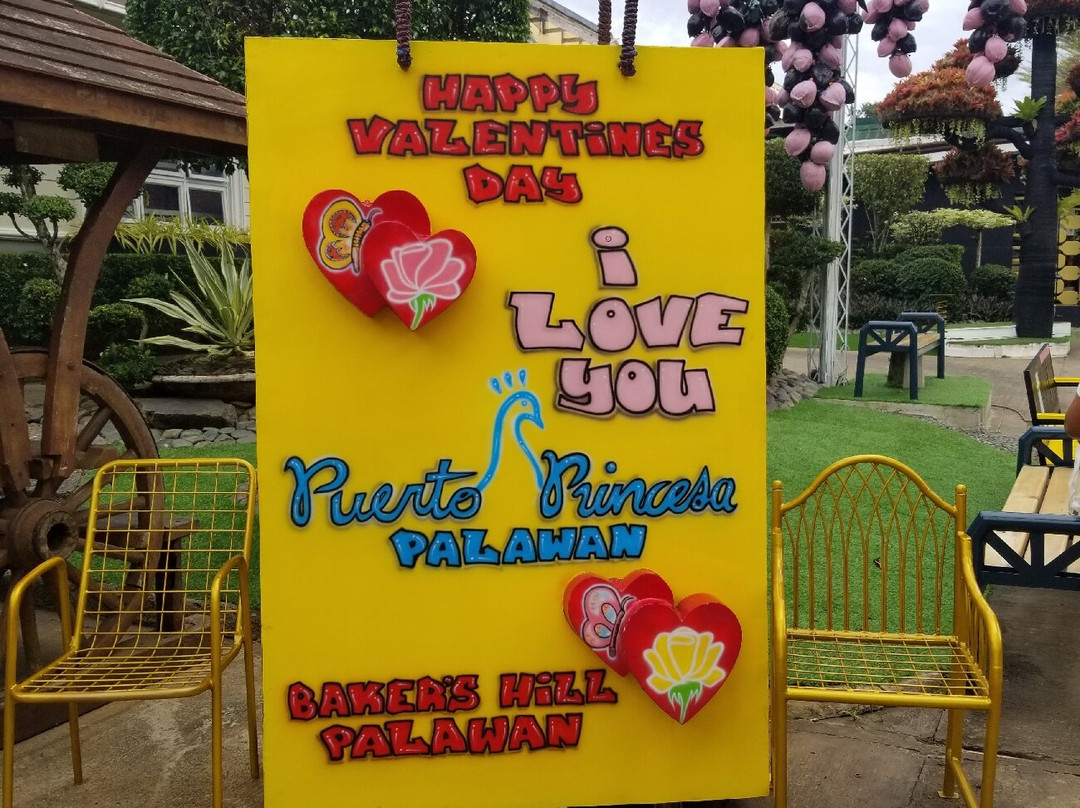 HAPPY
VALENTiNES
DAY
i
LOVE
YOU
Puerto Princesa
PALAWAN
BAKER'S HiLL
PALAWAN